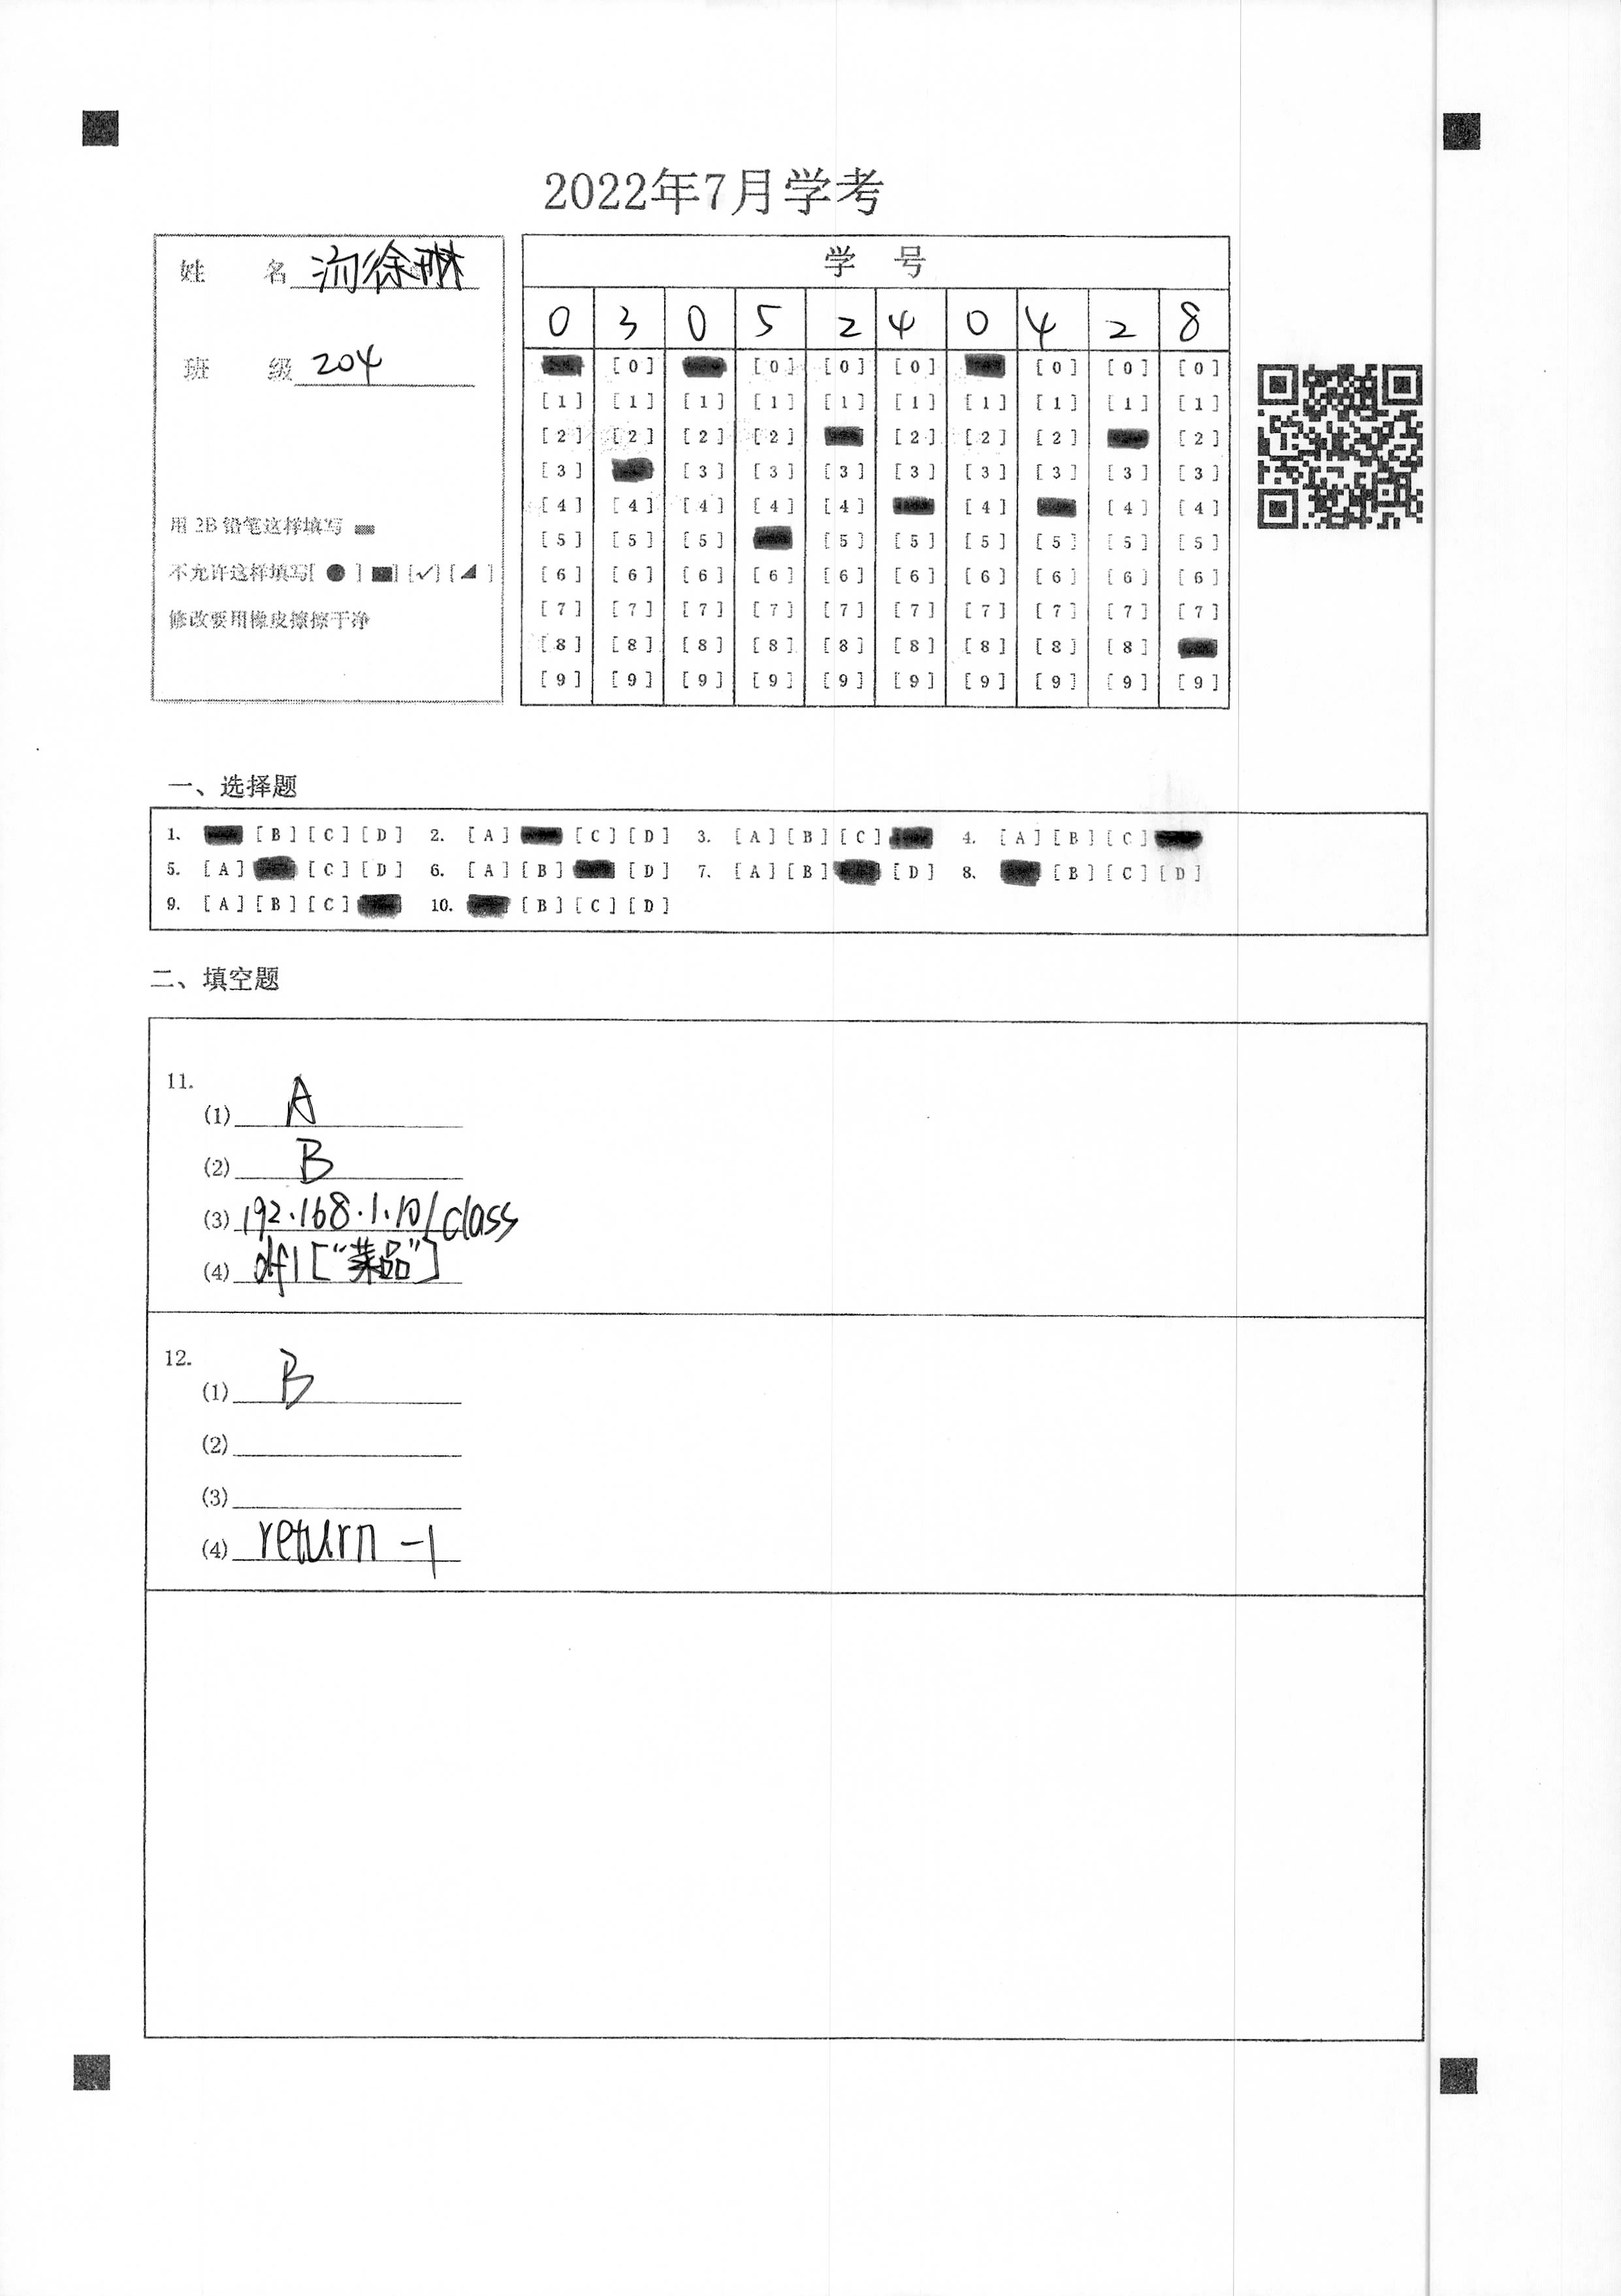 2022年7月学考
姓 名 徐琳
班 级 204
用 2B 铅笔这样填写
不允许这样填写[ ● ] [■] [✓] [◢ ]
修改要用橡皮擦擦干净
学 号
0 3 0 5 2 4 0 4 2 8
[0] [0] [0] [0] [0] [0] [0]
[1] [1] [1] [1] [1] [1] [1] [1] [1] [1]
[2] [2] [2] [2] [2] [2] [2] [2]
[3] [3] [3] [3] [3] [3] [3] [3] [3]
[4] [4] [4] [4] [4] [4] [4] [4]
[5] [5] [5] [5] [5] [5] [5] [5] [5]
[6] [6] [6] [6] [6] [6] [6] [6] [6] [6]
[7] [7] [7] [7] [7] [7] [7] [7] [7] [7]
[8] [8] [8] [8] [8] [8] [8] [8] [8]
[9] [9] [9] [9] [9] [9] [9] [9] [9] [9]
一、选择题
1. [B] [C] [D] 2. [A] [C] [D] 3. [A] [B] [C] 4. [A] [B] [C]
5. [A] [C] [D] 6. [A] [B] [D] 7. [A] [B] [D] 8. [B] [C] [D]
9. [A] [B] [C] 10. [B] [C] [D]
二、填空题
11.
(1) A
(2) B
(3) 192.168.1.10/class
(4) df1["菜品"]
12.
(1) B
(2)
(3)
(4) return -1